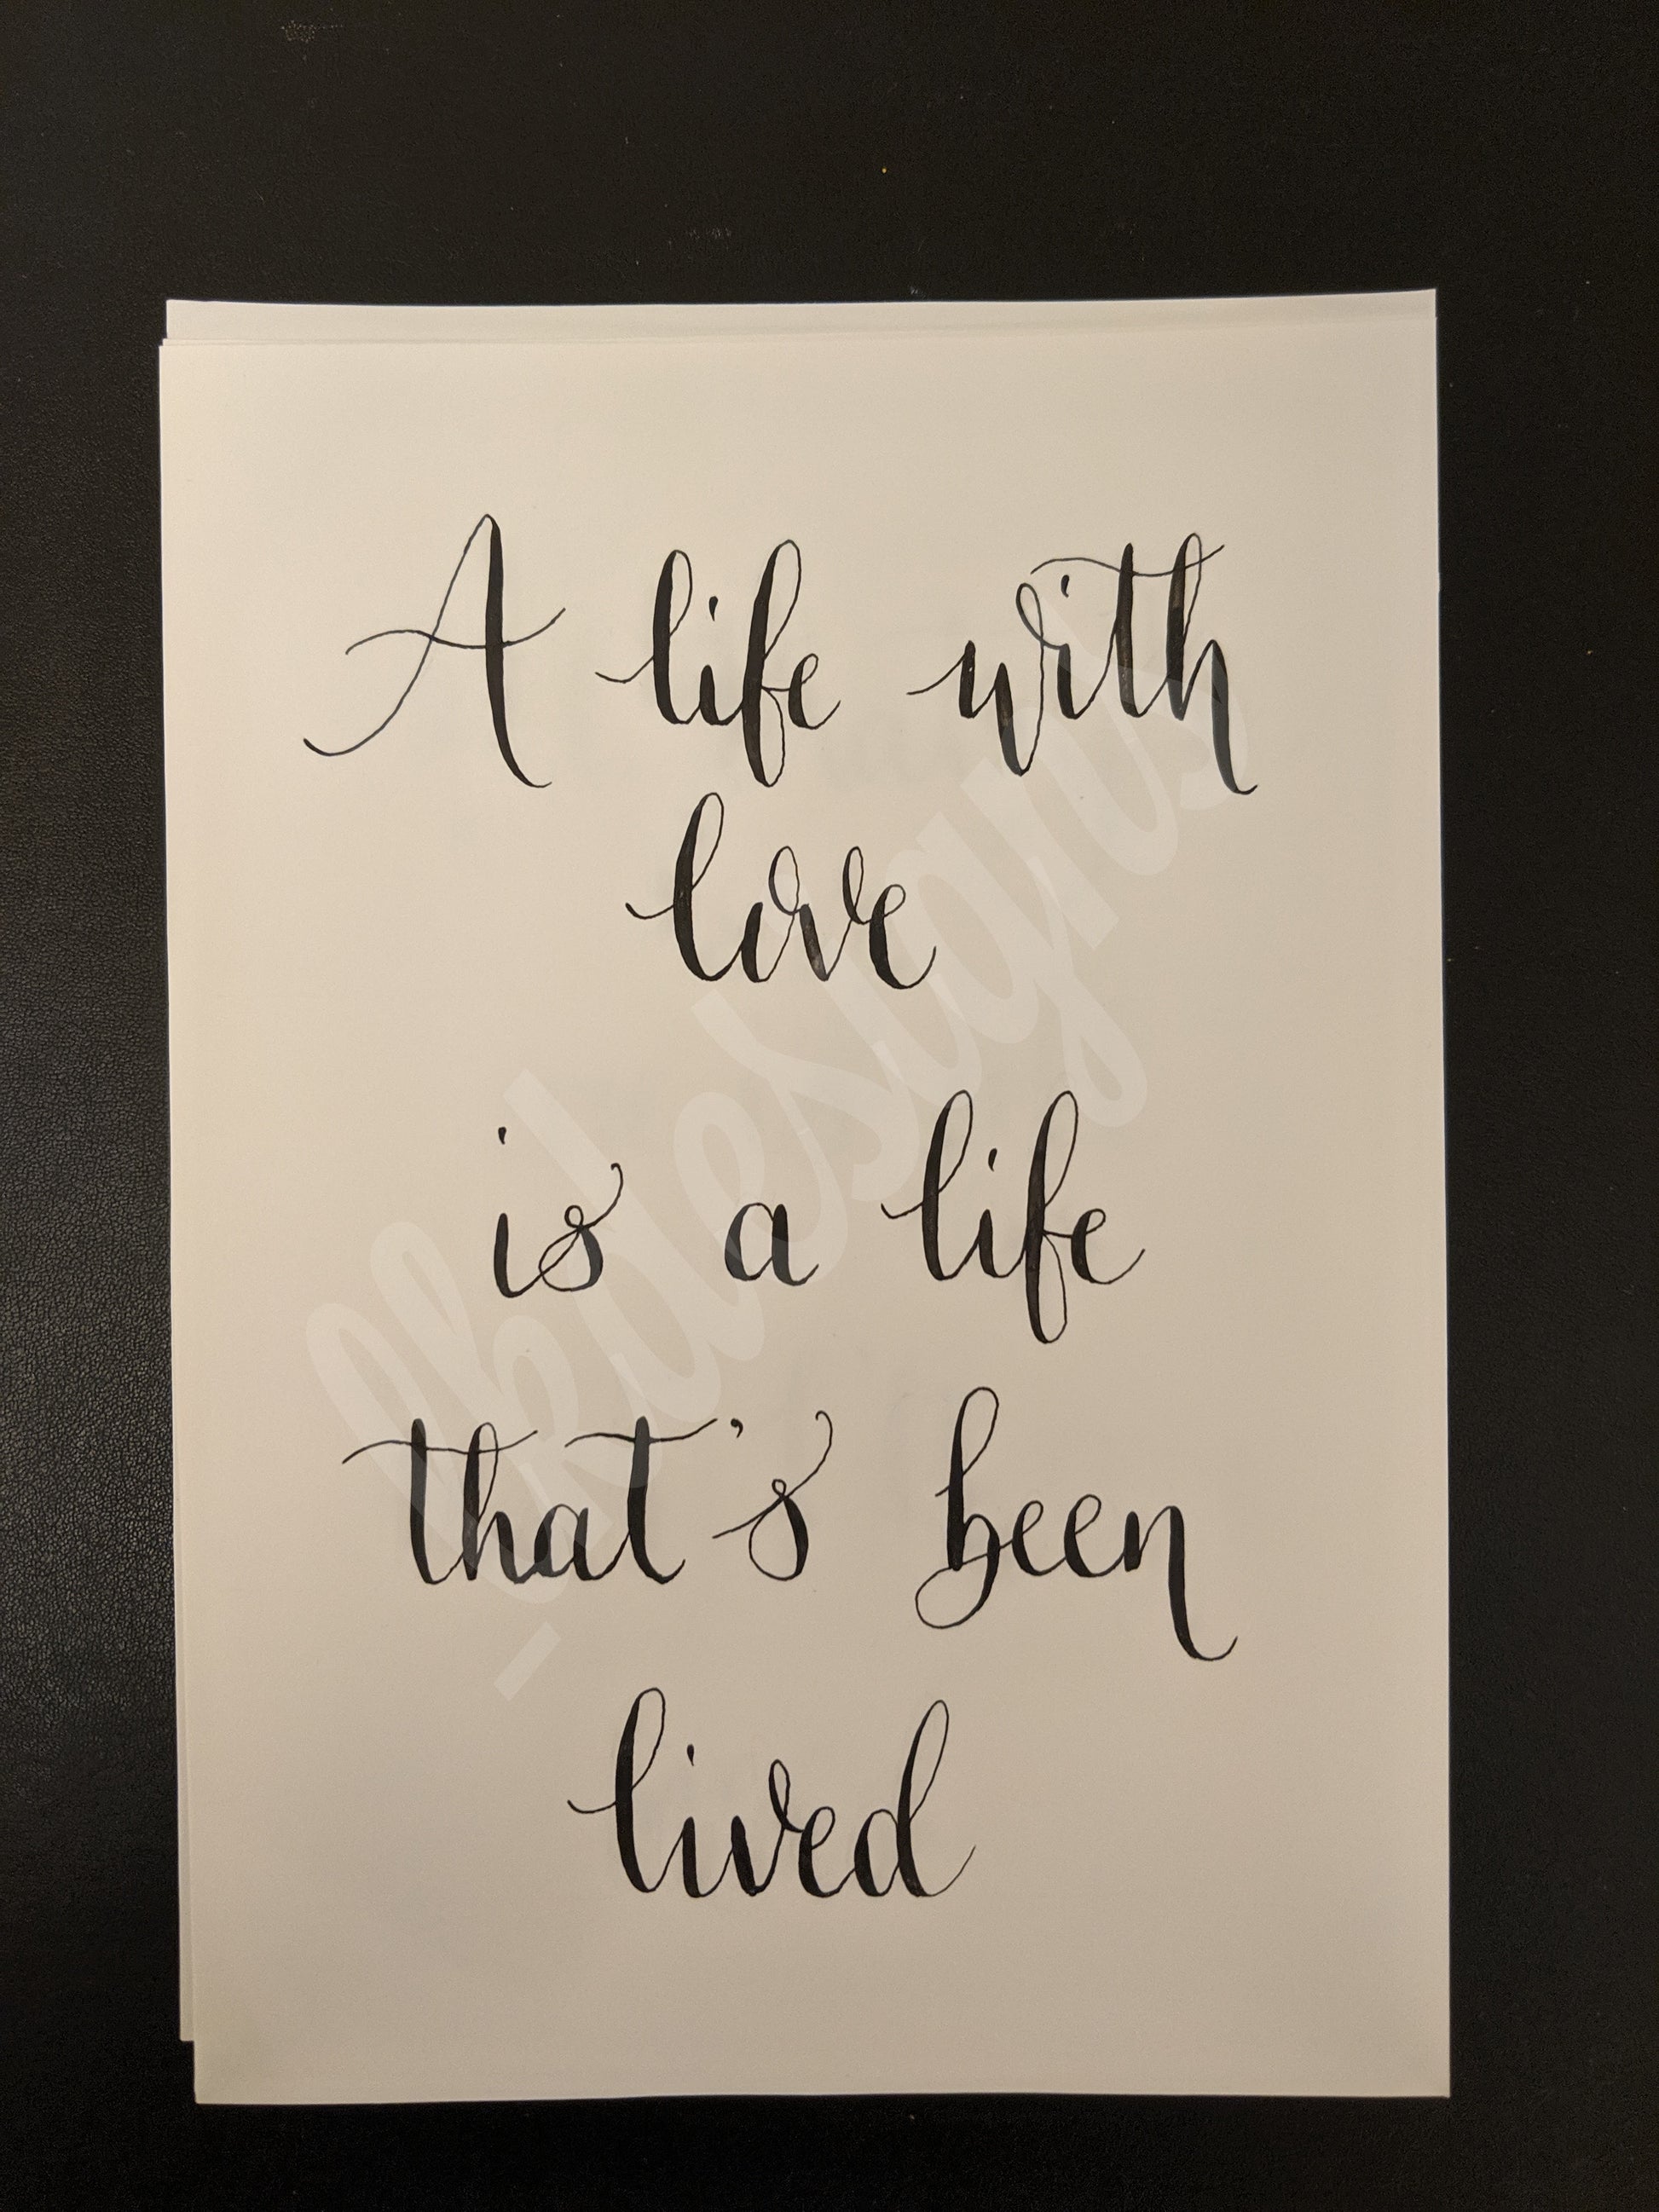 A life with
love
is a life
that's been
lived